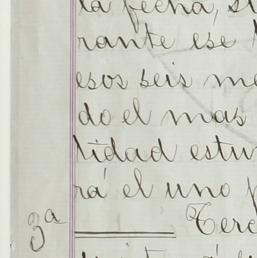 la fecha, si
rante ese
esos seis me
do el mas
tidad estu
rá el uno p
3ª Terc